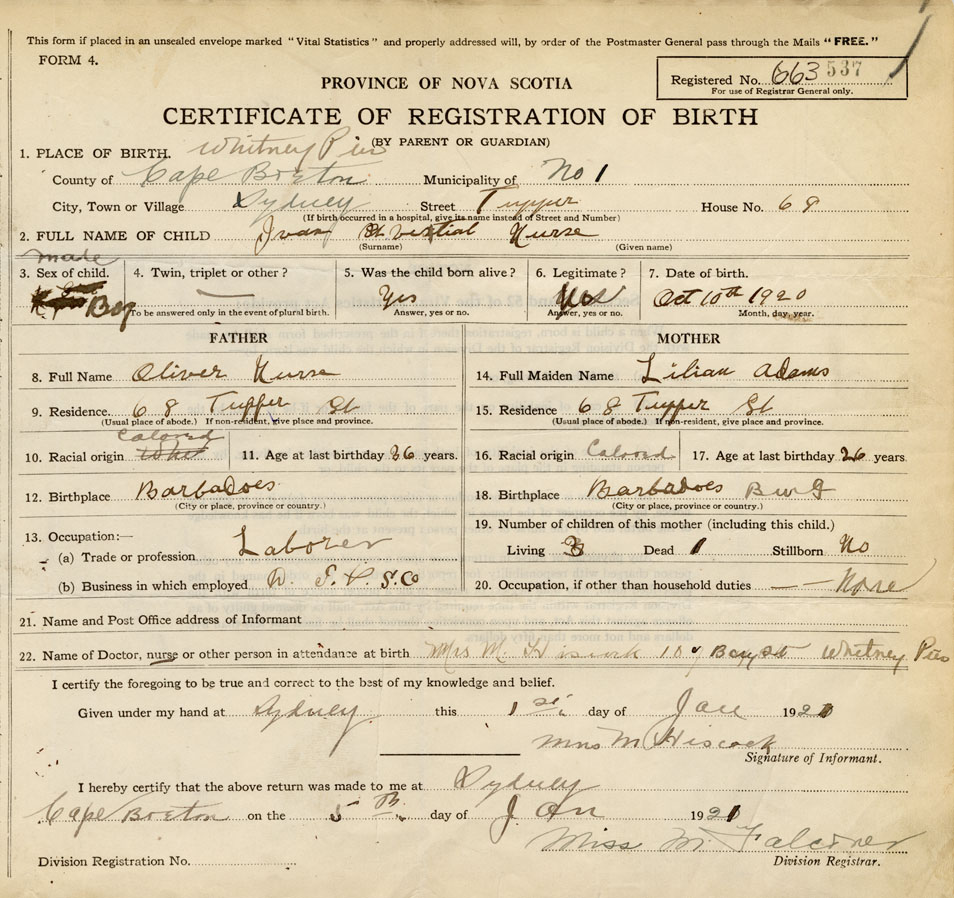 This form if placed in an unsealed envelope marked "Vital Statistics" and properly addressed will, by order of the Postmaster General pass through the Mails "FREE."
FORM 4.
Registered No. 663 537
For use of Registrar General only.
PROVINCE OF NOVA SCOTIA
CERTIFICATE OF REGISTRATION OF BIRTH
(BY PARENT OR GUARDIAN)
1. PLACE OF BIRTH. Whitney Pier
County of Cape Breton Municipality of No 1
City, Town or Village Sydney Street Tupper House No. 68
(If birth occurred in a hospital, give its name instead of Street and Number)
2. FULL NAME OF CHILD Ivan Nurse
(Surname) (Given name)
3. Sex of child. Boy
4. Twin, triplet or other? —
To be answered only in the event of plural birth.
5. Was the child born alive? Yes
Answer, yes or no.
6. Legitimate? Yes
Answer, yes or no.
7. Date of birth. Oct 10th 1920
Month, day, year.
FATHER
8. Full Name Oliver Nurse
9. Residence. 68 Tupper St
(Usual place of abode.) If non-resident, give place and province.
10. Racial origin Colored
11. Age at last birthday 36 years.
12. Birthplace Barbadoes
(City or place, province or country.)
13. Occupation:—
(a) Trade or profession Laborer
(b) Business in which employed S. Co
MOTHER
14. Full Maiden Name Lilian Adams
15. Residence 68 Tupper St
(Usual place of abode.) If non-resident, give place and province.
16. Racial origin Colored
17. Age at last birthday 26 years.
18. Birthplace Barbadoes
(City or place, province or country.)
19. Number of children of this mother (including this child.)
Living 3 Dead 1 Stillborn No
20. Occupation, if other than household duties — None
21. Name and Post Office address of Informant
22. Name of Doctor, nurse or other person in attendance at birth Mrs M. Hiscock Whitney Pier
I certify the foregoing to be true and correct to the best of my knowledge and belief.
Given under my hand at Sydney this 1st day of Jan 1921
Mrs M Hiscock
Signature of Informant.
I hereby certify that the above return was made to me at Sydney
Cape Breton on the 5th day of Jan 1921
Miss M.
Division Registration No.
Division Registrar.